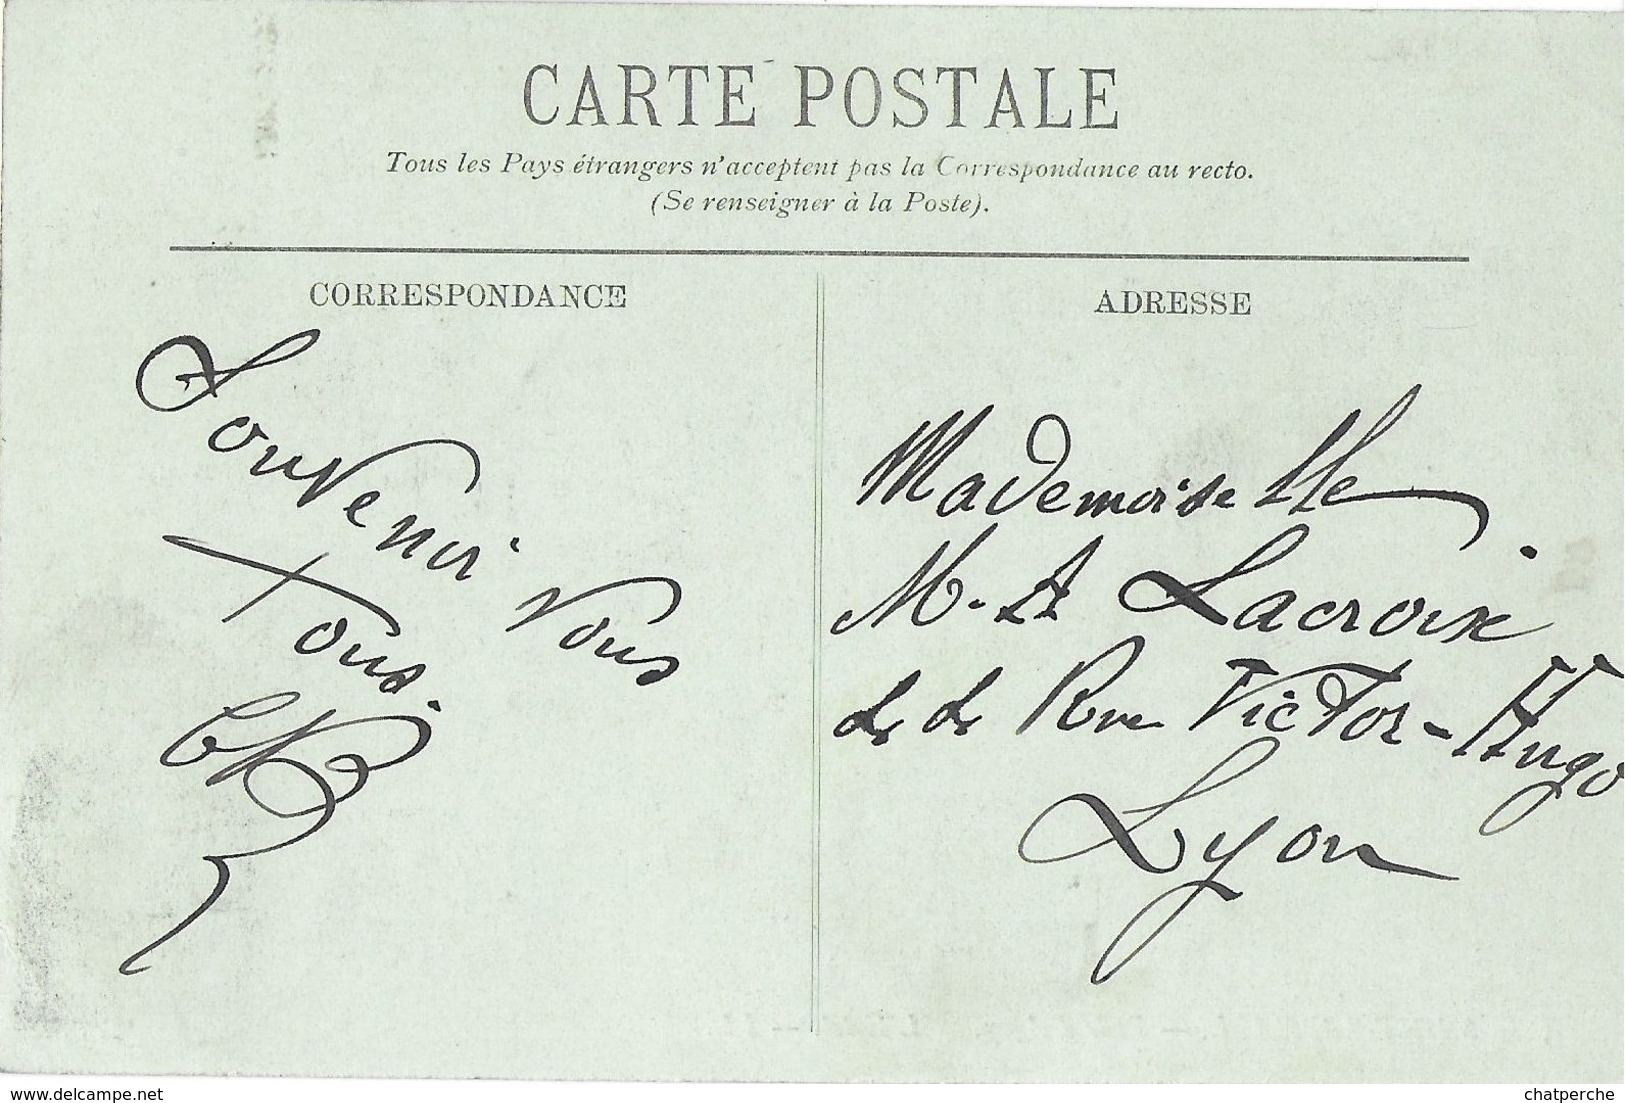 CARTE POSTALE
Tous les Pays étrangers n'acceptent pas la Correspondance au recto.
(Se renseigner à la Poste).
CORRESPONDANCE
Souvenir
Vous
Tous.
ADRESSE
Mademoiselle
M. A Lacroix.
Rue Victor-Hugo
Lyon
www.delcampe.net
chatperche